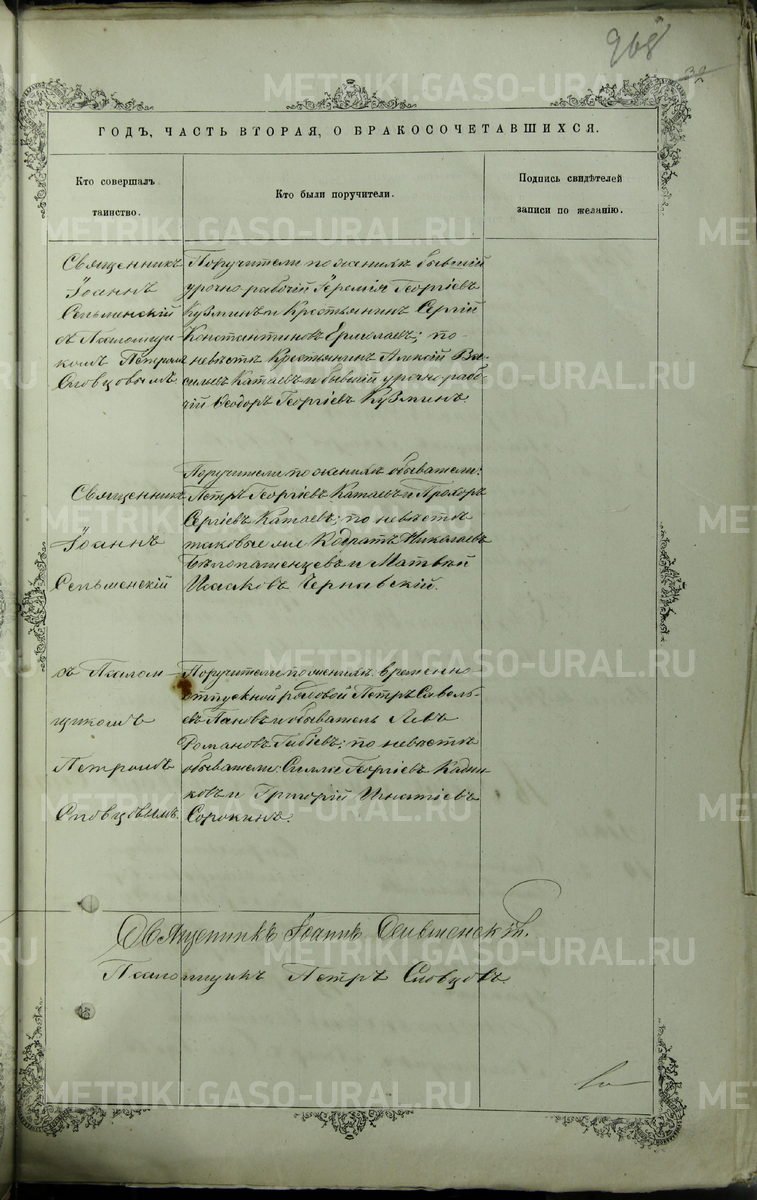 968
32
ГОДЪ, ЧАСТЬ ВТОРАЯ, О БРАКОСОЧЕТАВШИХСЯ.
Кто совершалъ
таинство.
Кто были поручители.
Подпись свидѣтелей
записи по желанію.
Священникъ
Іоаннъ
Сельменскій
съ Псаломщи-
комъ Петромъ
Словцовымъ
Поручители по женихѣ бывшій
урочно рабочій Іеремія Георгіевъ
Кузминъ и Крестьянинъ Сергій
Константиновъ Ермолаевъ; по
невѣстѣ Крестьянинъ Алексій Ва-
сильевъ Катаевъ и бывшій урочно рабо-
чій Ѳеодоръ Георгіевъ Кузминъ.
Священникъ
Іоаннъ
Сельменскій
Поручители по женихѣ обыватели:
Петръ Георгіевъ Катаевъ и Прохоръ
Сергіевъ Катаевъ; по невѣстѣ
таковые же Кодратъ Николаевъ
Бѣлопашенцевъ и Матвѣй
Исааковъ Чернавскій.
съ Псалом-
щикомъ
Петромъ
Словцовымъ.
Поручители по женихѣ временно
отпускной рядовой Петръ Савель-
евъ Пановъ и обыватель Левъ
Романовъ Гибіевъ; по невѣстѣ
обыватели: Силла Георгіевъ Кадни-
ковъ и Григорій Игнатіевъ
Сорокинъ.
Священникъ Іоаннъ Сельменскій.
Псаломщикъ Петръ Словцовъ.
METRIKI.GASO-URAL.RU